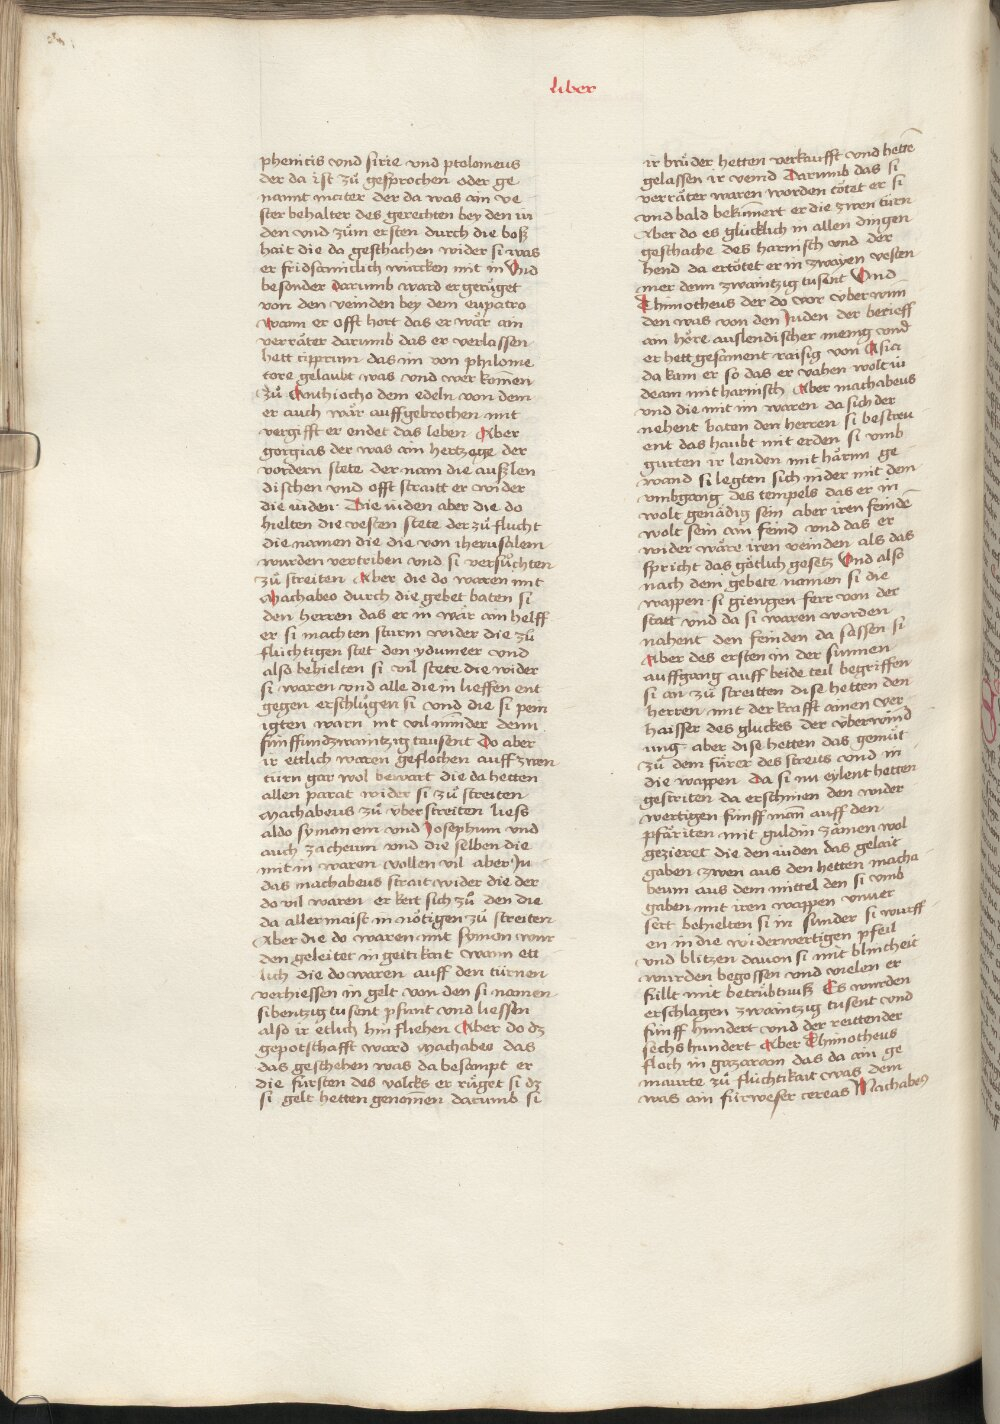 liber
phenicis vnd sirie vnd ptolomeus
der da ist zů gesprochen oder ge
nannt maiter der da was ain ve
ster behalter des gerechten bey den iu
den vnd zům ersten durch die boß
hait die da geschachen wider si was
er fridsāmclich wurcken mit in Vnd
besonder darumb ward er gerůget
von den veinden bey dem eupatro
wann er offt hort das er wår ain
verråter darumb das er verlassen
hett cipprum das im von philome
tore gelaubt was vnd wer komen̄
zů Anthiocho dem edeln von dem
er auch wår auffgebrochen mit
vergifft er endet das leben Aber
gorgias der was ain hertzoge der
vordern stete der nam die außlen
dischen vnd offt straitt er wider
die iuden Die iuden aber die do
hielten die vesten stete der zů flucht
die namen die die von iherusalem
wurden vertriben vnd si versůchten
zů streiten Aber die do waren mit
Machabeo durch die gebet baten si
den herren das er in wår ain helff
er si machten sturm wider die zů
fluchtigen stet den ydumeer vnd
also behielten si vil stete die wider
si waren vnd alle die in lieffen ent
gegen erschlůgen si vnd die si pein
igten warn nit vil minder denn
fünffundzwaintzig tausent Do aber
ir ettlich waren geflochen auff zwen
türn gar wol bewart die da hetten
allen parat wider si zů streiten
Machabeus zů vberstreiten liess
aldo symonem vnd Josephum vnd
auch zacheum vnd die selben die
mit in waren vollen vil aber Ju
das machabeus strait wider die der
do vil waren er kert sich zů den die
da allermaist in nötigen zů streiten
Aber die do waren mit symon wur
den geleitet in geitikait wann ett
lich die do waren auff den türnen
verhiessen in gelt von den si namen
sibentzig tusent pfunt vnd liessen
also ir etlich hin fliehen Aber do dz
gepotschafft ward machabeo das
das geschehen was da besampt er
die fürsten des volcks er rüget si dz
si gelt hetten genomen̄ darumb si
ir brůder hetten verkaufft vnd hettē
gelassen ir veind Darumb das si
verråter waren worden tötet er si
vnd bald bekümert er die zwen türn
Aber do es glücklich in allen dingen
geschache des harnisch vnd der
hend da ertötet er in zwayen vesten
mer denn zwaintzig tusent Vnd
Thimotheus der do vor vberwun
den was von den Juden der berieff
ain höre auslendischer menig vnd
er hett gesament raisig von Asia
da kam er so das er vahen wolt iu
deam mit harnisch Aber machabeus
vnd die mit im waren da sich der
nehent baten den herren si bestreu
ent das haubt mit erden si vmb
gurten ir lenden mit hårim ge
wand si legten sich nider mit dem
vmbgang des tempels das er in
wolt genådig sein aber iren feindē
wolt sein ain feind vnd das er
wider wåre iren veinden als das
spricht das götlich gesetz Vnd also
nach dem gebete namen si die
wappen si giengen ferr von der
statt vnd da si waren worden
nahent den feinden da sassen si
Aber des ersten in der sunnen
auffgang auff beide teil begriffen
si an zů streitten dise hetten den
herren mit der krafft ainen ver
haisser des gluckes der überwind
ung aber dise hetten das gemüt
zů dem fürer des streits vnd in
die wappen da si nu eylent hetten
gestriten da erschinen den wider
wertigen fünff man̄ auff den
pfåriten mit guldin zåmen wol
gezieret die den iuden das gelait
gaben zwen aus den hetten macha
beum aus dem mittel den si vmb
gaben mit iren wappen vnuer
sert behielten si in sunder si wurff
en in die widerwertigen pfeil
vnd blitzen dauon si mit blintheit
wurden begossen vnd vielen er
füllt mit betrübtnuß Es wurden
erschlagen zwaintzig tusent vnd
fünff hundert vnd der reittender
sechs hundert Aber Thimotheus
floch in gazaram das da ain ge
maurte zů flüchtikait was dem
was ain fürweser cereas Machabeus